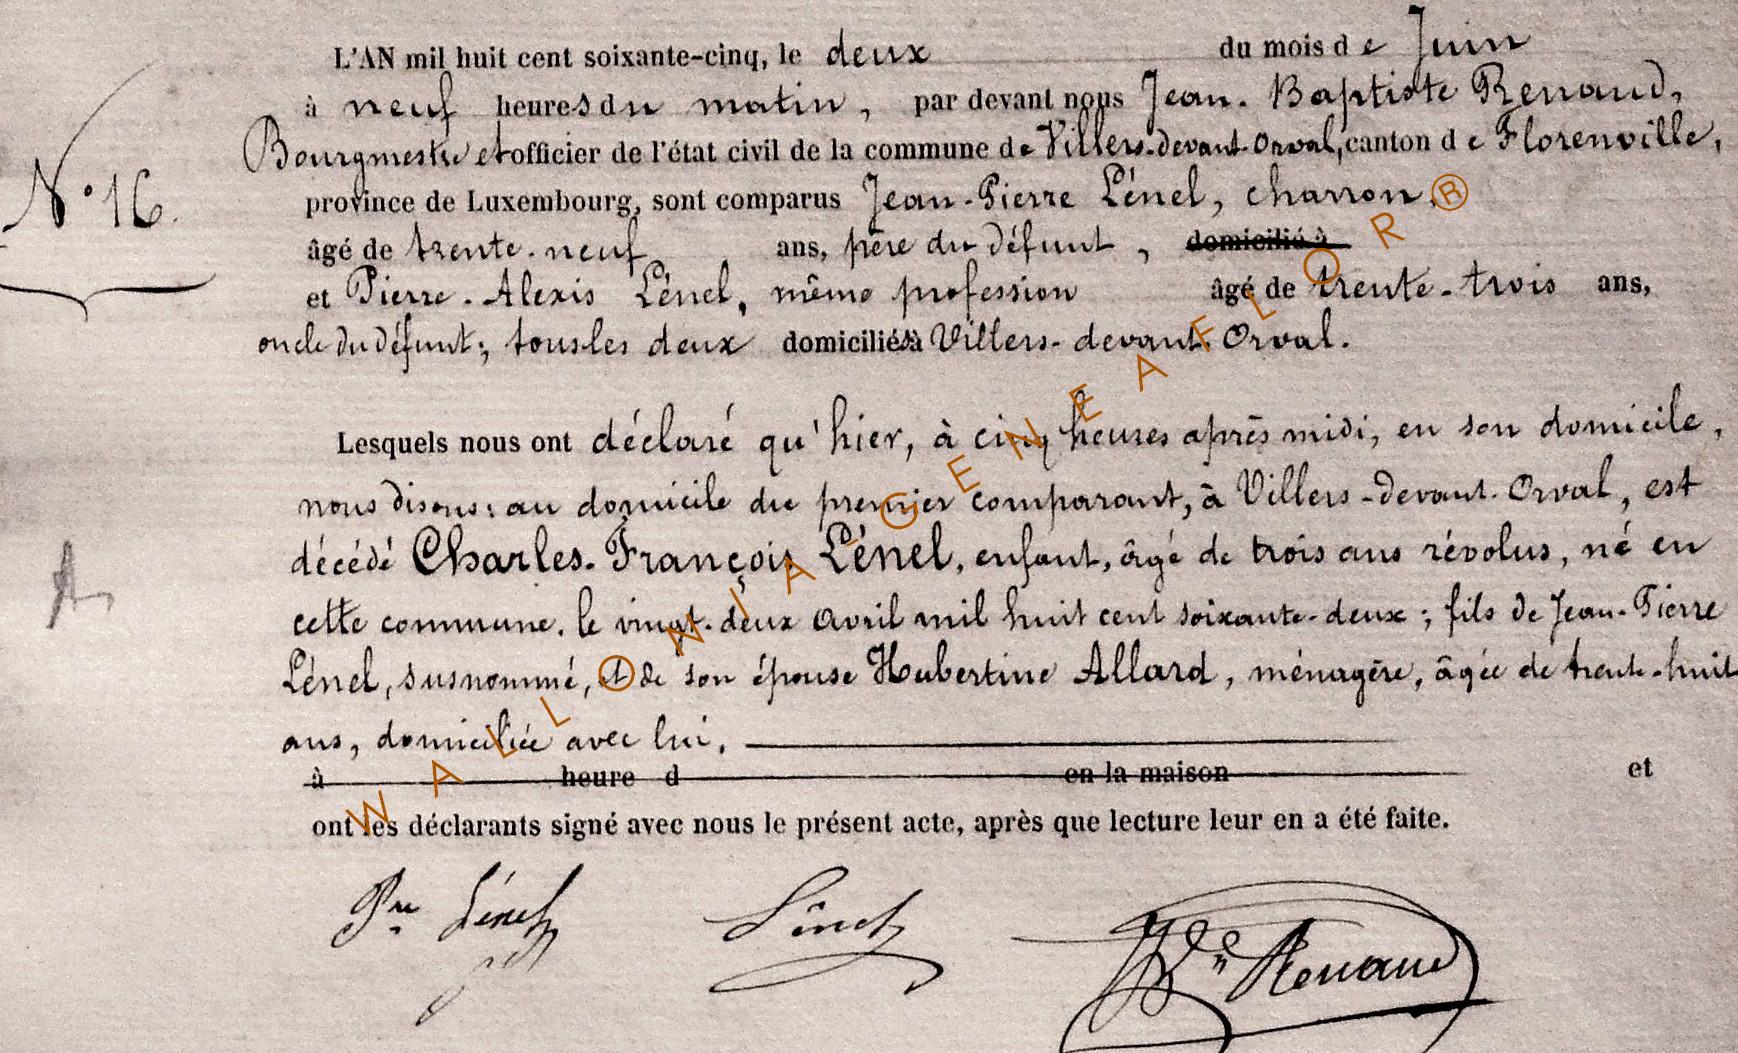 L'AN mil huit cent soixante-cinq, le deux du mois de Juin
à neuf heures du matin, par devant nous Jean-Baptiste Renaud,
Bourgmestre et officier de l'état civil de la commune de Villers-devant-Orval, canton de Florenville,
N° 16.
province de Luxembourg, sont comparus Jean-Pierre Lénel, charron,
âgé de trente-neuf ans, père du défunt, domicilié à
et Pierre-Alexis Lénel, même profession âgé de trente-trois ans,
oncle du défunt; tous les deux domiciliés à Villers-devant-Orval.
Lesquels nous ont déclaré qu'hier, à cinq heures après midi, en son domicile,
nous disons: au domicile du premier comparant, à Villers-devant-Orval, est
décédé Charles-François Lénel, enfant, âgé de trois ans révolus, né en
cette commune, le vingt-deux avril mil huit cent soixante-deux; fils de Jean-Pierre
Lénel, susnommé, et de son épouse Hubertine Allard, ménagère, âgée de trente-huit
ans, domiciliée avec lui.
à heure d en la maison et
ont les déclarants signé avec nous le présent acte, après que lecture leur en a été faite.
Pre Lénel Lénel Renaud
WALLONIA-GENEAFLOR®